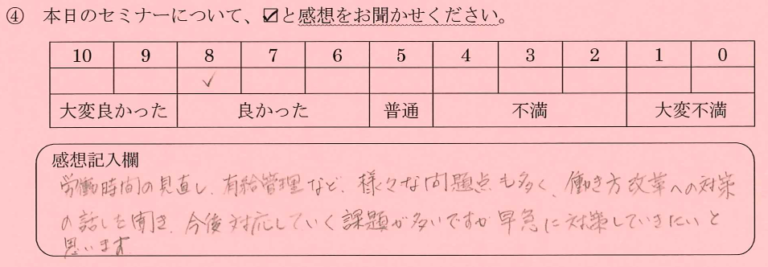 ④ 本日のセミナーについて、☑と感想をお聞かせください。
10 9 8 7 6 5 4 3 2 1 0
✓
大変良かった 良かった 普通 不満 大変不満
感想記入欄
労働時間の見直し、有給管理など、様々な問題点も多く、働き方改革への対策
の話しを聞き、今後対応していく課題が多いですが早急に対策していきたいと
思います